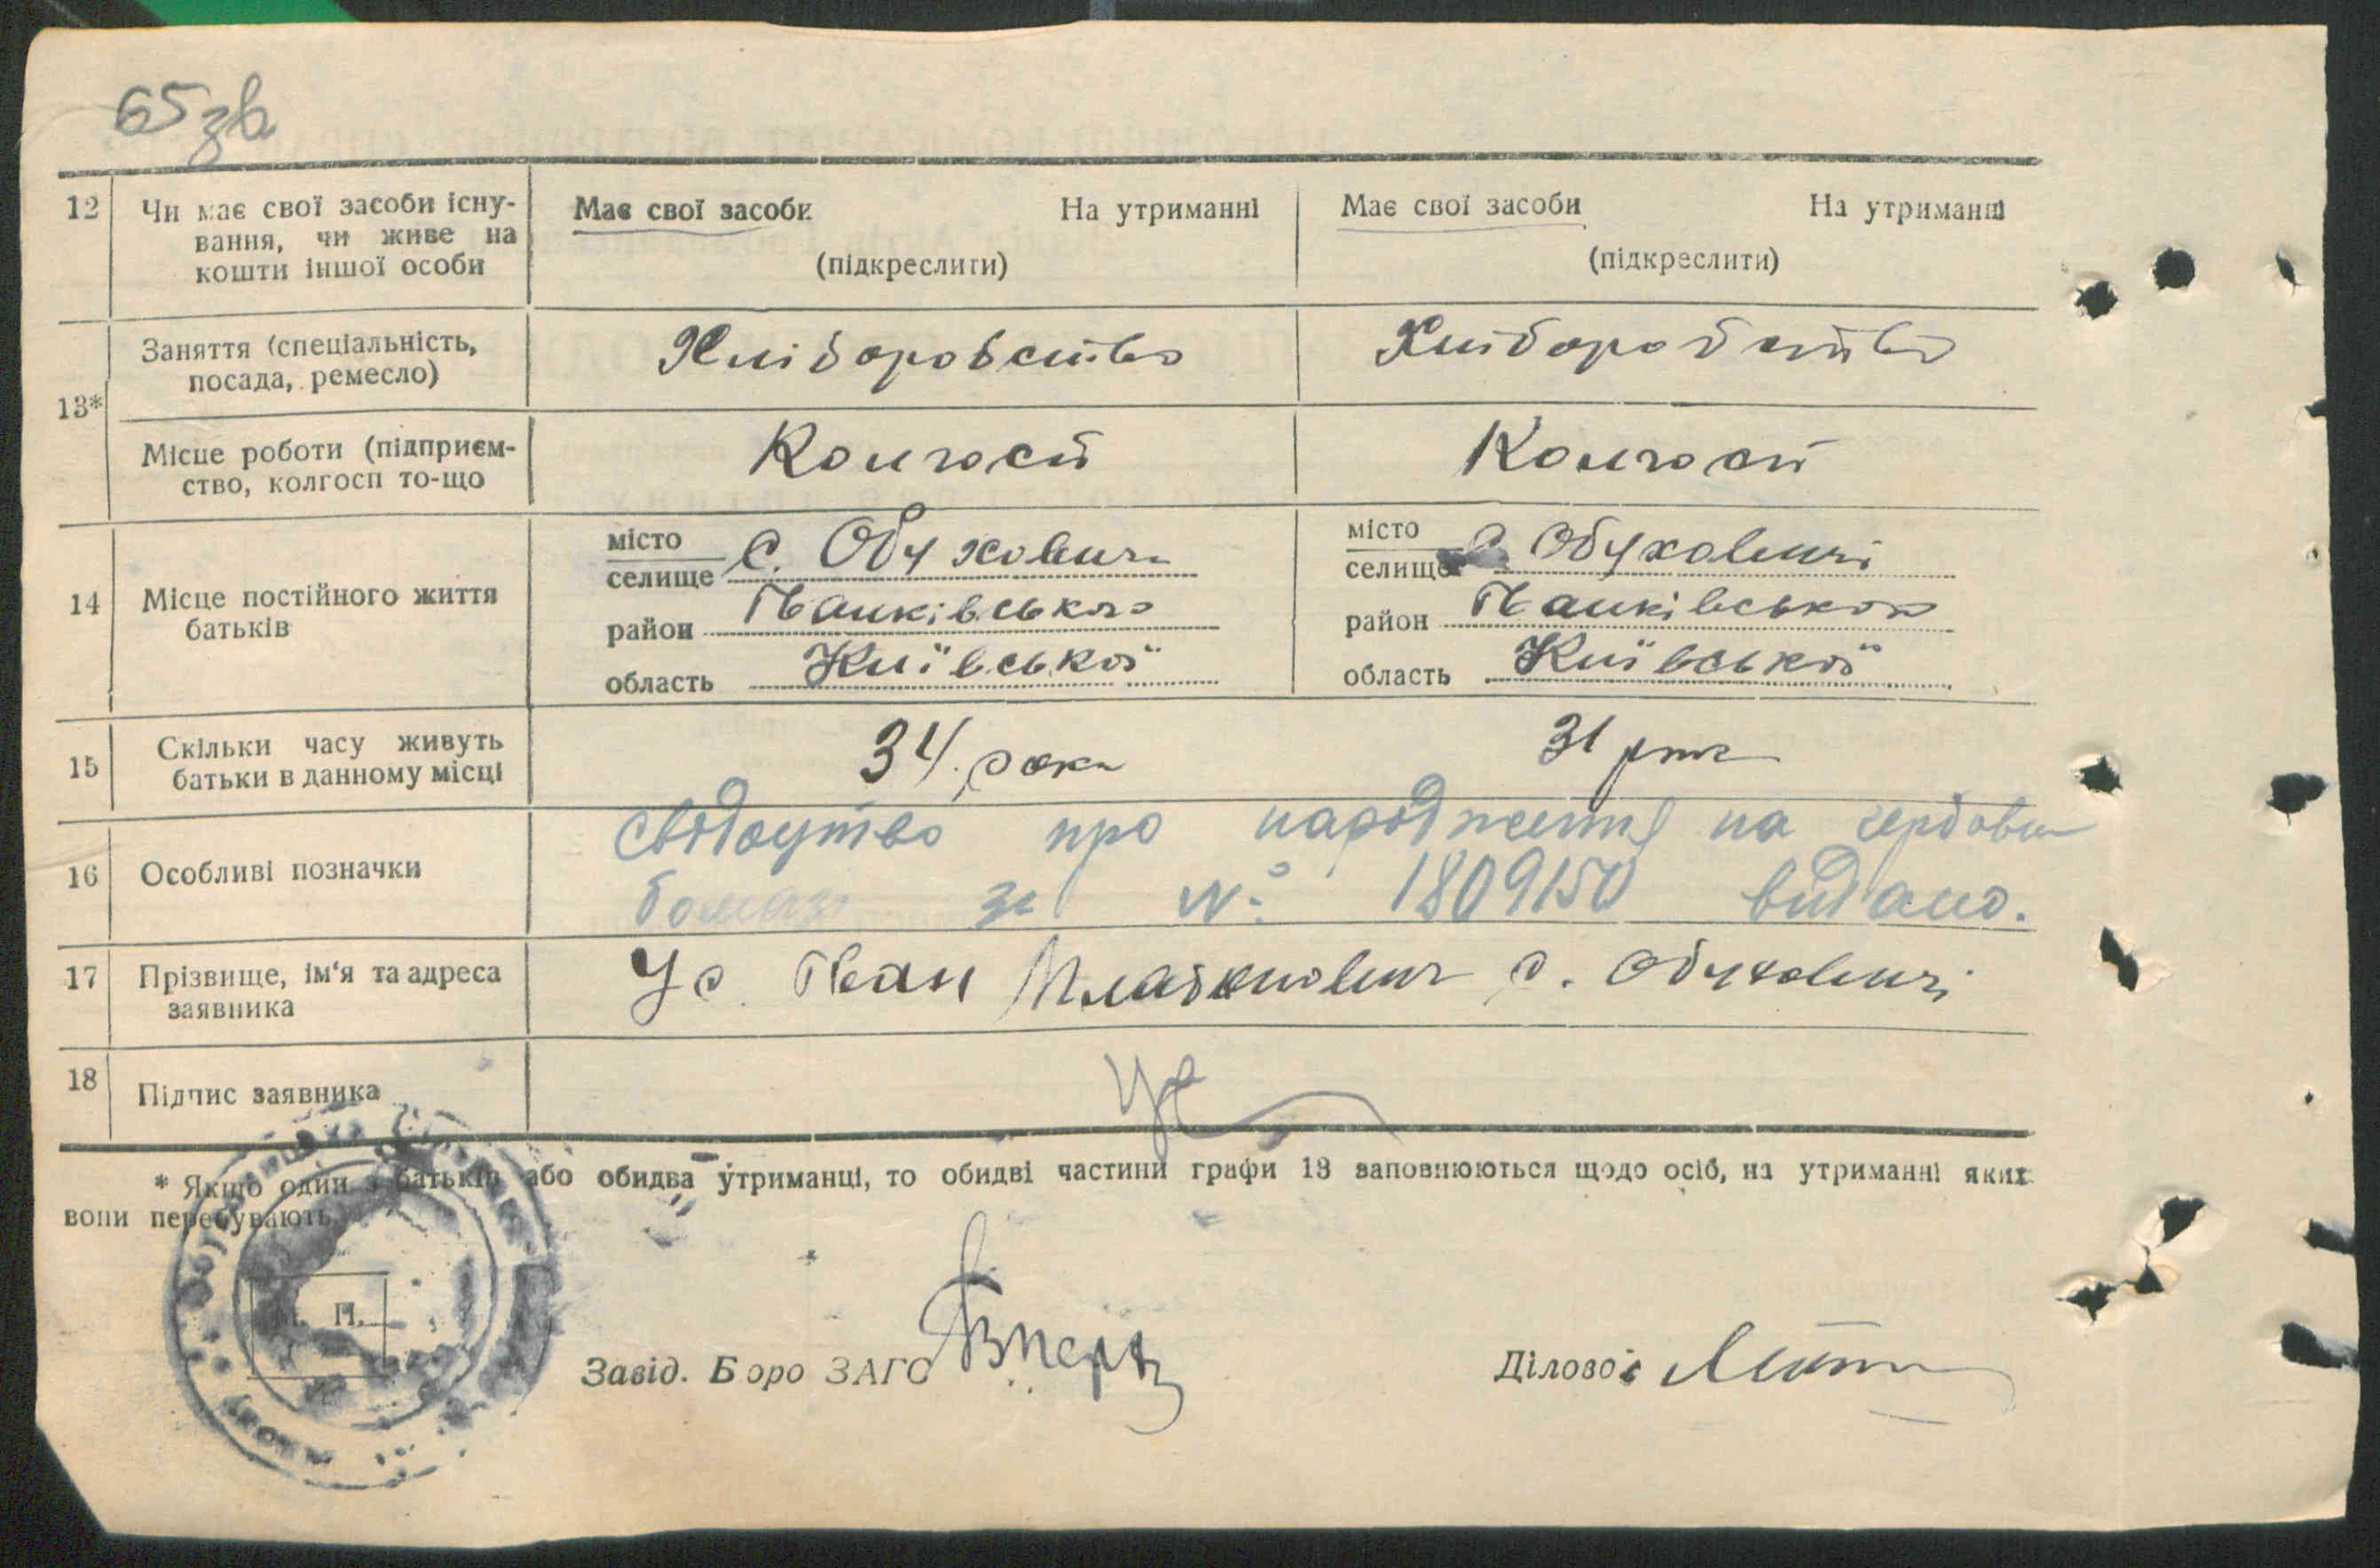 65 зв
12 Чи має свої засоби існу- Має свої засоби На утриманні Має свої засоби На утриманні
вання, чи живе на
кошти іншої особи (підкреслити) (підкреслити)
Заняття (спеціальність, Хліборобство Хліборобство
посада, ремесло)
13*
Місце роботи (підприєм- Колгосп Колгосп
ство, колгосп то-що
місто с. Обуховичі місто с Обуховичі
селище селище
14 Місце постійного життя район Іванківського район Іванківського
батьків
область Київської область Київської
15 Скільки часу живуть 34 роки 31 рік
батьки в данному місці
свідоцтво про народження на гербовій
16 Особливі позначки
бомазі за № 1809150 видано.
17 Прізвище, ім'я та адреса Ус Іван с. Обуховичі
заявника
18 Підпис заявника Ус
* Якщо один з батьків або обидва утриманці, то обидві частини графи 13 заповнюються щодо осіб, на утриманні яких
вони перебувають.
М. П.
Завід. Бюро ЗАГС Діловод